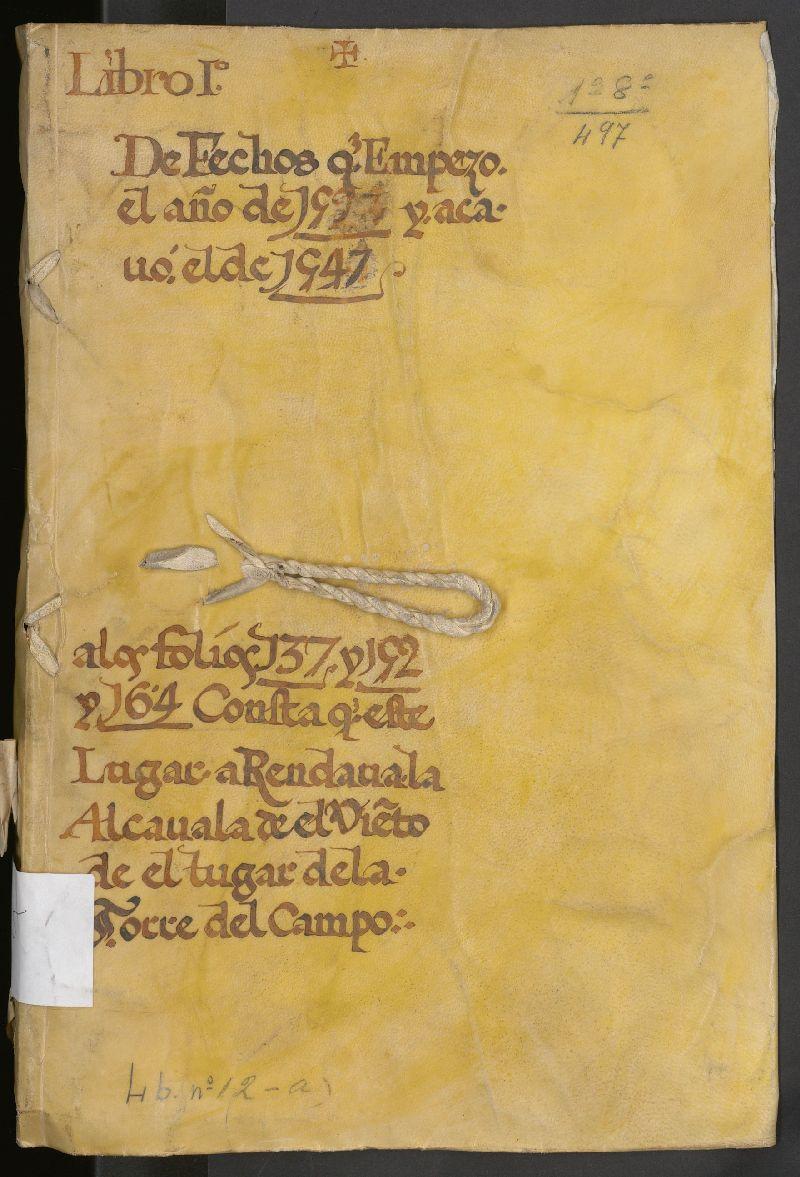 Libro I.º ✠
1ª 8ª
497
De Fechos q.ᵉ Empezo.
el año de y. aca-
uó. el de 1547.
a los folios 137. y 152
y. 164 Consta q.ᵉ este
Lugar. aRendaua. la
Alcauala de el Viẽto
de el Lugar de la.
Torre del Campo:.
Lib. nº (2-a)